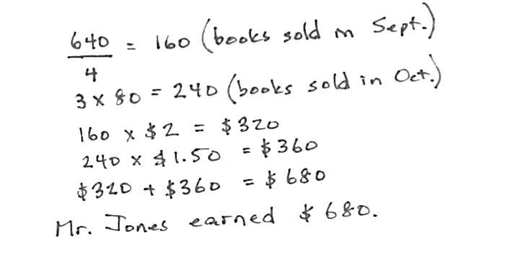 640/4 = 160 (books sold in Sept.)
3 x 80 = 240 (books sold in Oct.)
160 x $2 = $320
240 x $1.50 = $360
$320 + $360 = $680
Mr. Jones earned $680.